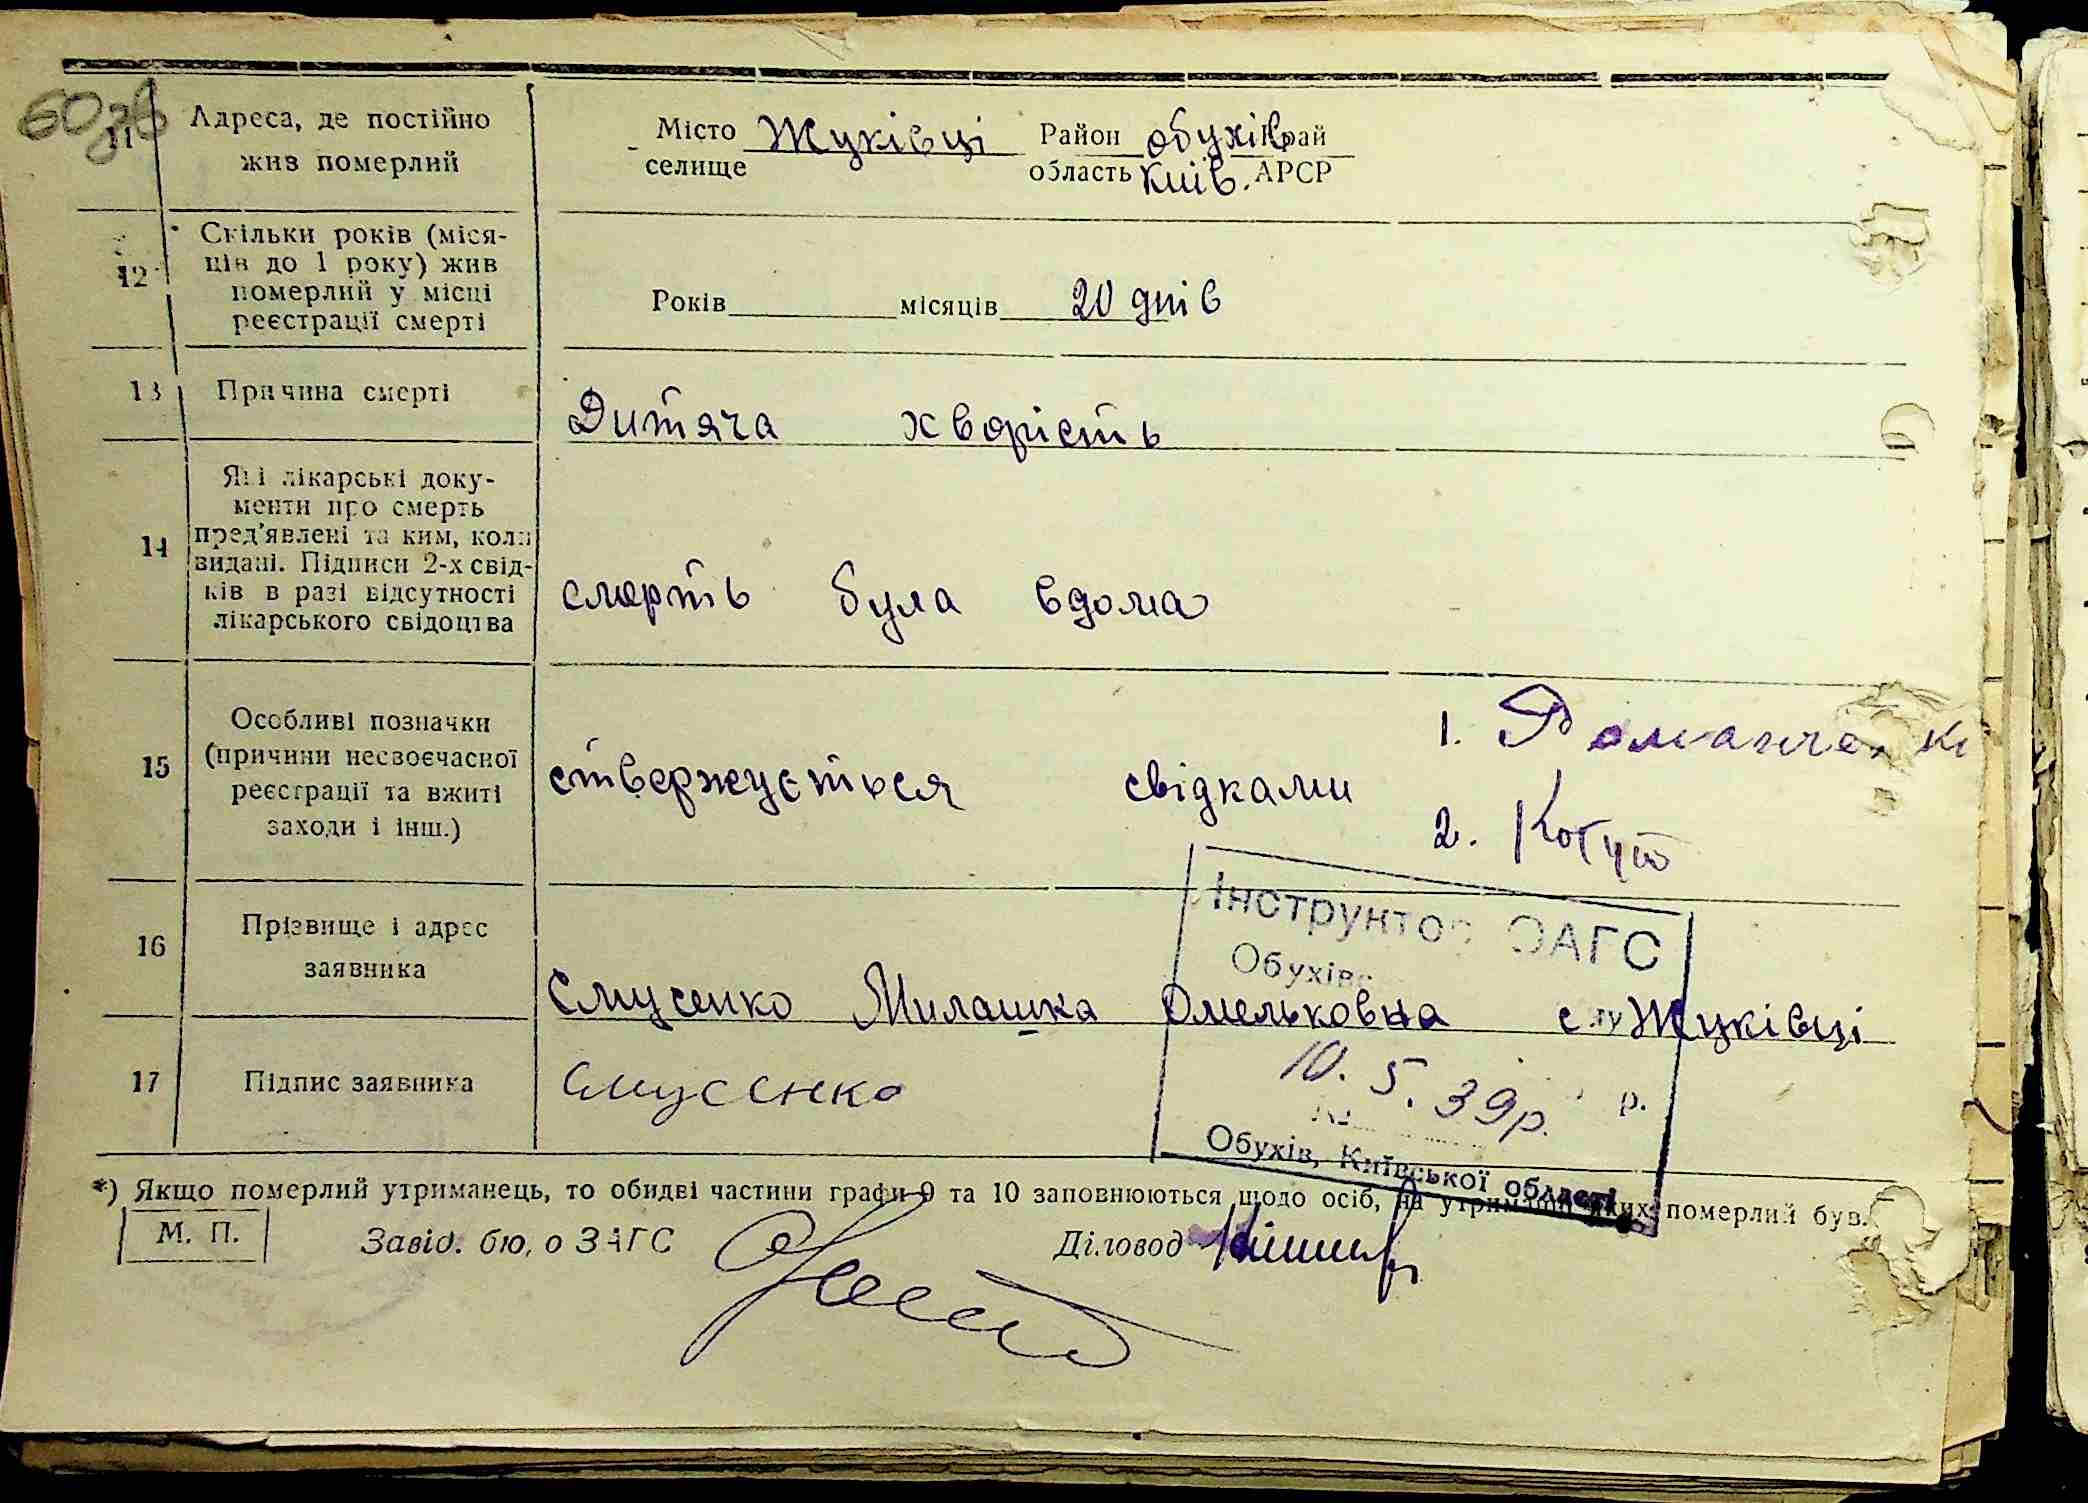 60зв
11 Адреса, де постійно жив померлий
Місто селище Жуківці Район Обухів Край
область Київ. АРСР
12 Скільки років (міся-
ців до 1 року) жив
померлий у місці
реєстрації смерті
Років місяців 20 днів
13 Причина смерті
Дитяча хворість
14 Які лікарські доку-
менти про смерть
пред'явлені та ким, коли
видані. Підписи 2-х свід-
ків в разі відсутності
лікарського свідоцтва
смерть була вдома
15 Особливі позначки
(причини несвоєчасної
реєстрації та вжиті
заходи і інш.)
ствержується свідками
1. Романченко
2. Когут
16 Прізвище і адрес
заявника
Смусенко Милашка Омельковна с Жуківці
17 Підпис заявника
Смусенко
Інструктор ЗАГС
Обухівс
10. 5. 39р. р.
№
Обухів, Київської області
*) Якщо померлий утриманець, то обидві частини графи 9 та 10 заповнюються щодо осіб, на утриманні яких померлий був.
М. П. Завід. бюро ЗАГС Діловод